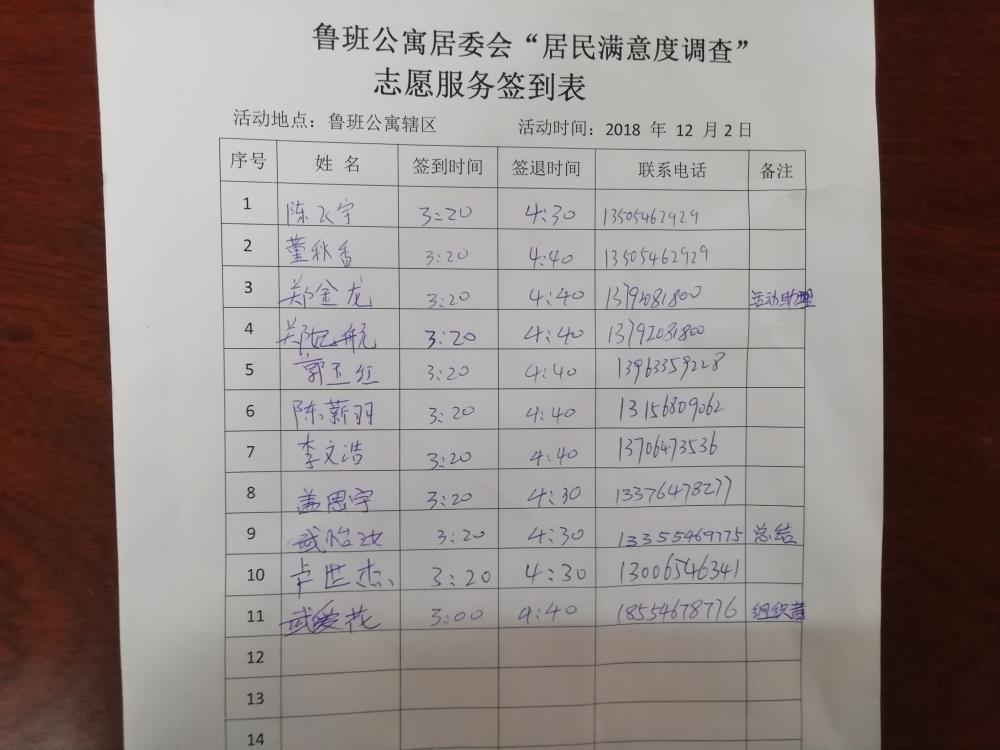 鲁班公寓居委会“居民满意度调查”
志愿服务签到表
活动地点：鲁班公寓辖区 活动时间：2018 年 12 月 2 日
序号 姓 名 签到时间 签退时间 联系电话 备注
1 陈飞宇 3:20 4:30 13505462929
2 董秋香 3:20 4:40 13505462929
3 郑金龙 3:20 4:40 13792081800 活动助理
4 郑 航 3:20 4:40 13792081800
5 郭玉红 3:20 4:40 13963359228
6 陈薪羽 3:20 4:40 13156809062
7 李文浩 3:20 4:40 13706473536
8 盖思宇 3:20 4:30 13376478277
9 3:20 4:30 13355469775 总结
10 卢世杰 3:20 4:30 13006546341
11 武爱花 3:00 4:40 18554678776 组织者
12
13
14